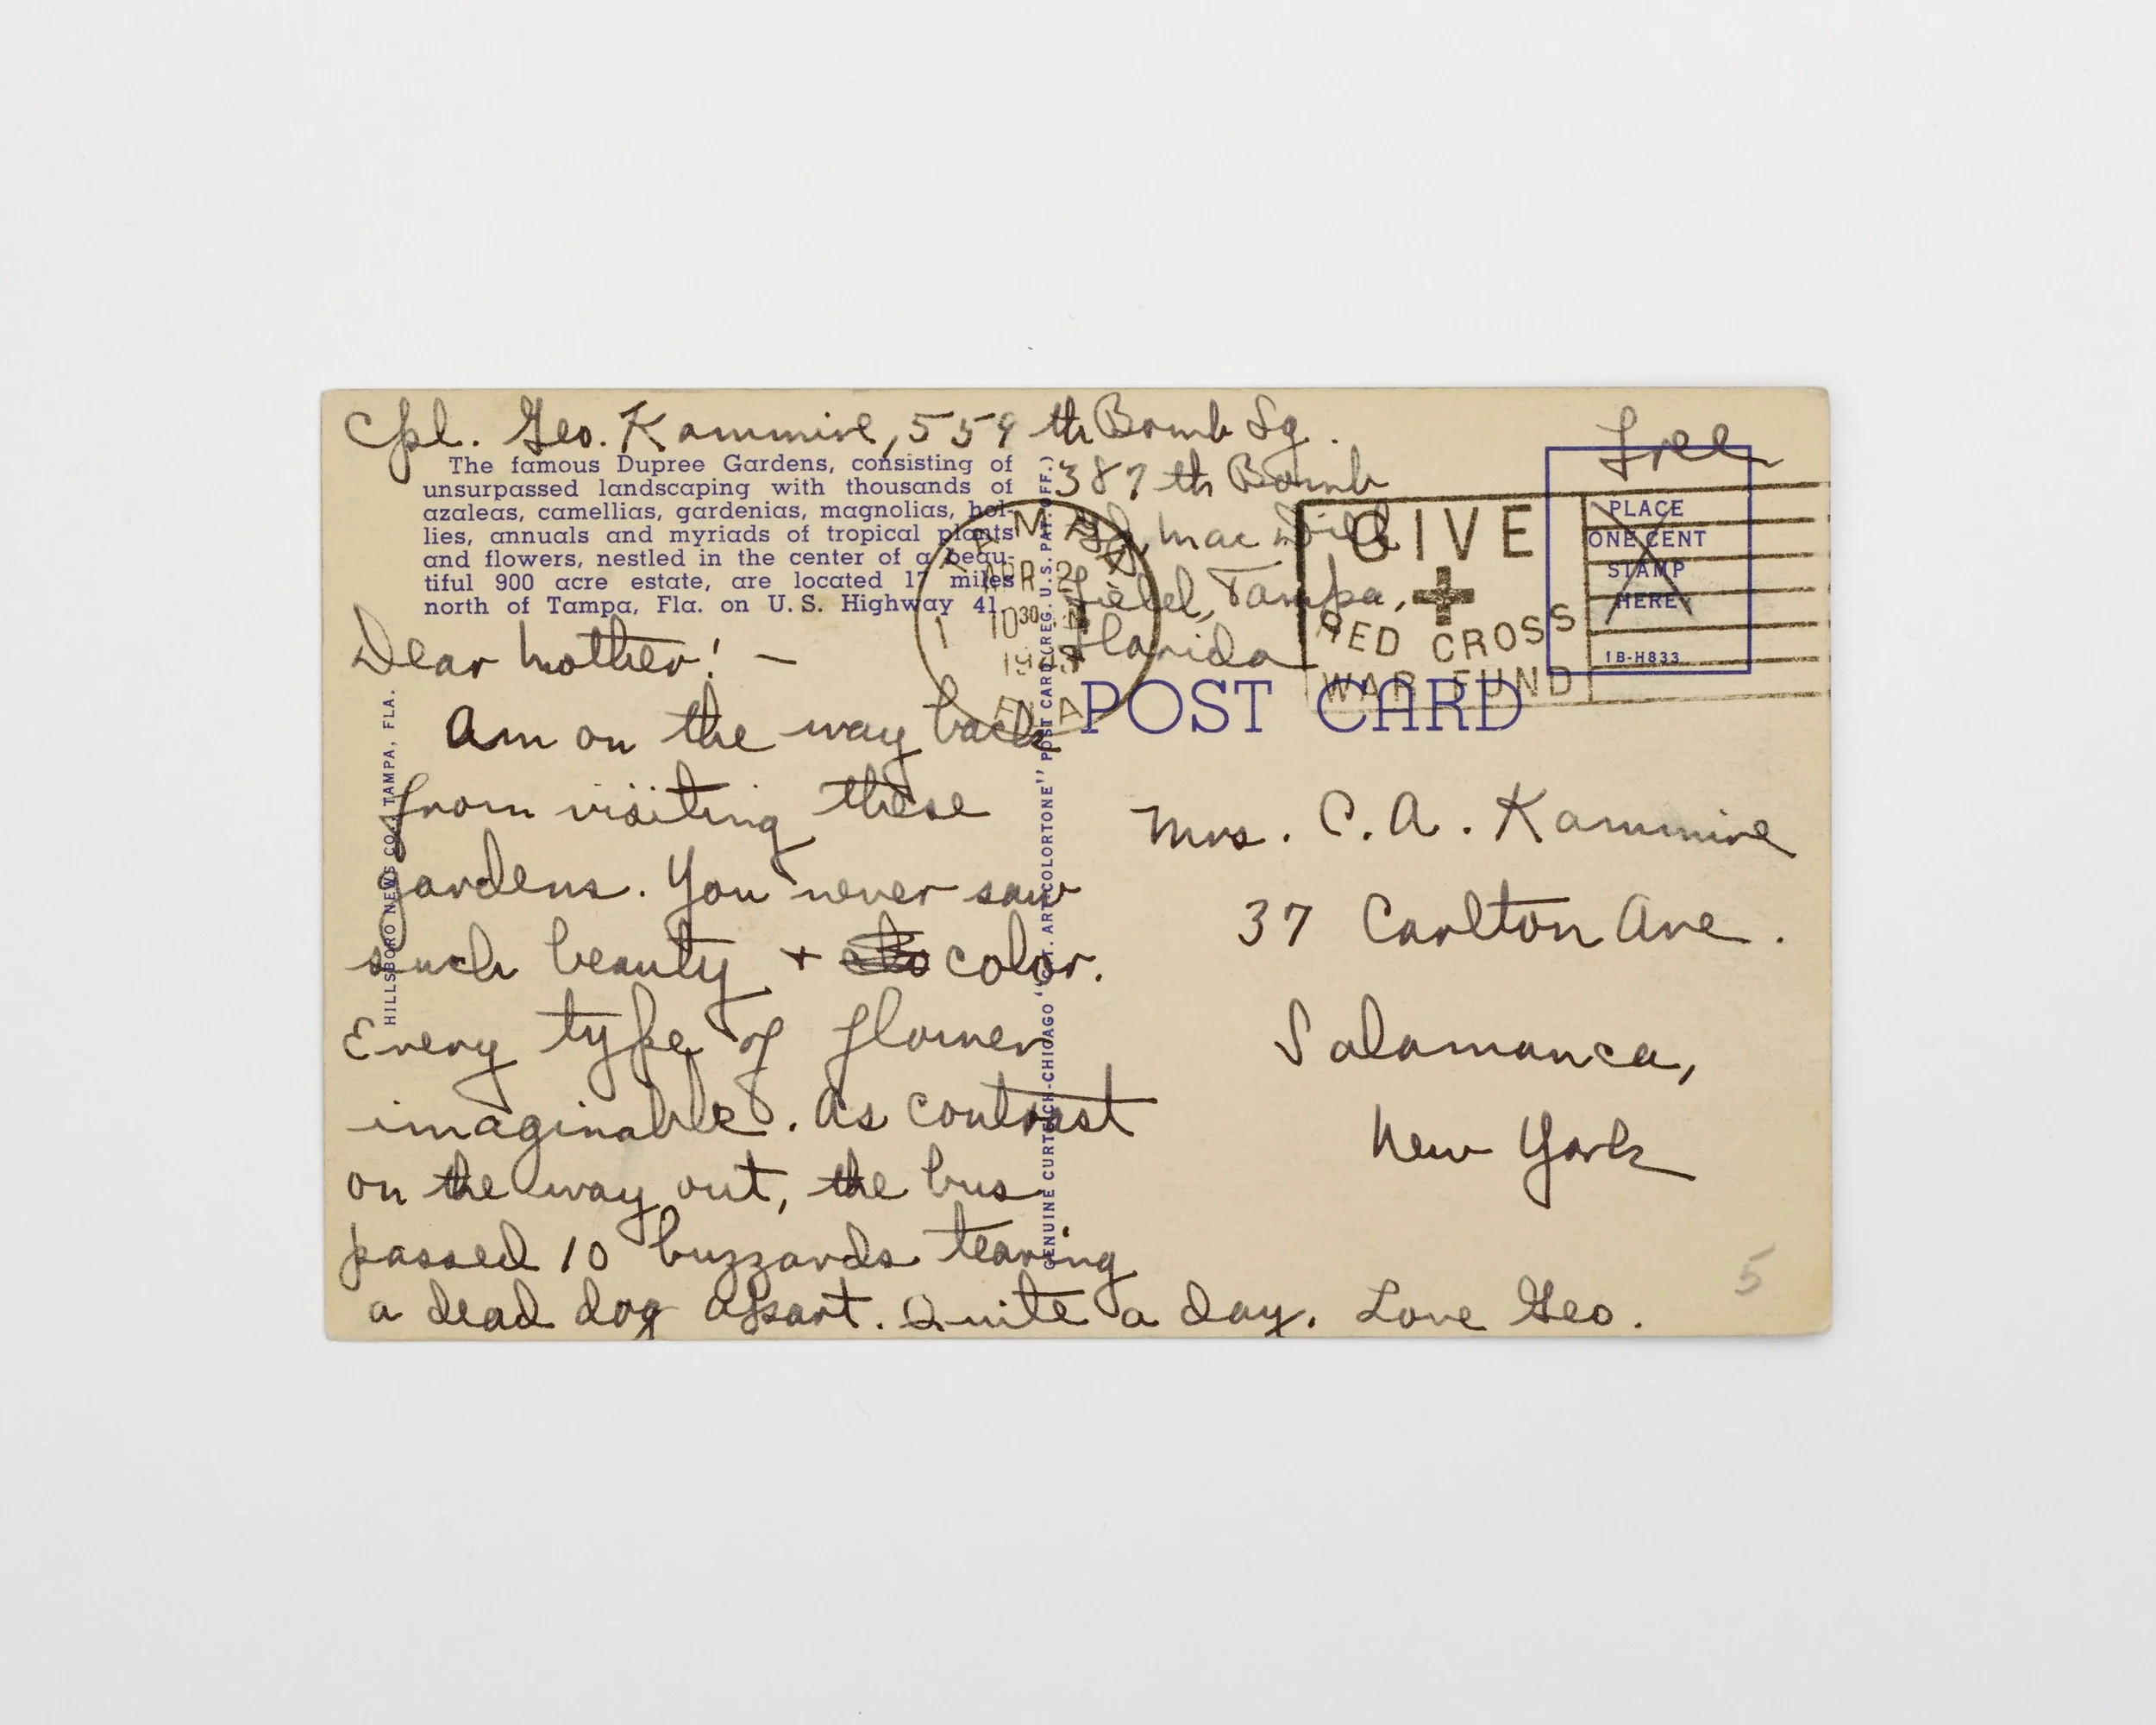 Cpl. Geo. Kammire, 559 th Bomb Sq.
387 th Bomb
Gp, Mac Dill
Field, Tampa,
Florida
Free
The famous Dupree Gardens, consisting of
unsurpassed landscaping with thousands of
azaleas, camellias, gardenias, magnolias, hol-
lies, annuals and myriads of tropical plants
and flowers, nestled in the center of a beau-
tiful 900 acre estate, are located 17 miles
north of Tampa, Fla. on U. S. Highway 41.
TAMPA
APR 2
10 30
1943
FLA
1
GIVE
RED CROSS
WAR FUND
PLACE
ONE CENT
STAMP
HERE
1B-H833
POST CARD
Dear Mother! —
Am on the way back
from visiting these
gardens. You never saw
such beauty + color.
Every type of flower
imaginable. As contrast
on the way out, the bus
passed 10 buzzards tearing
a dead dog apart. Quite a day. Love Geo.
Mrs. C. A. Kammire
37 Carlton Ave.
Salamanca,
New York
5
HILLSBORO NEWS CO., TAMPA, FLA.
GENUINE CURTEICH-CHICAGO "C.T. ART-COLORTONE" POST CARD (REG. U.S. PAT. OFF.)